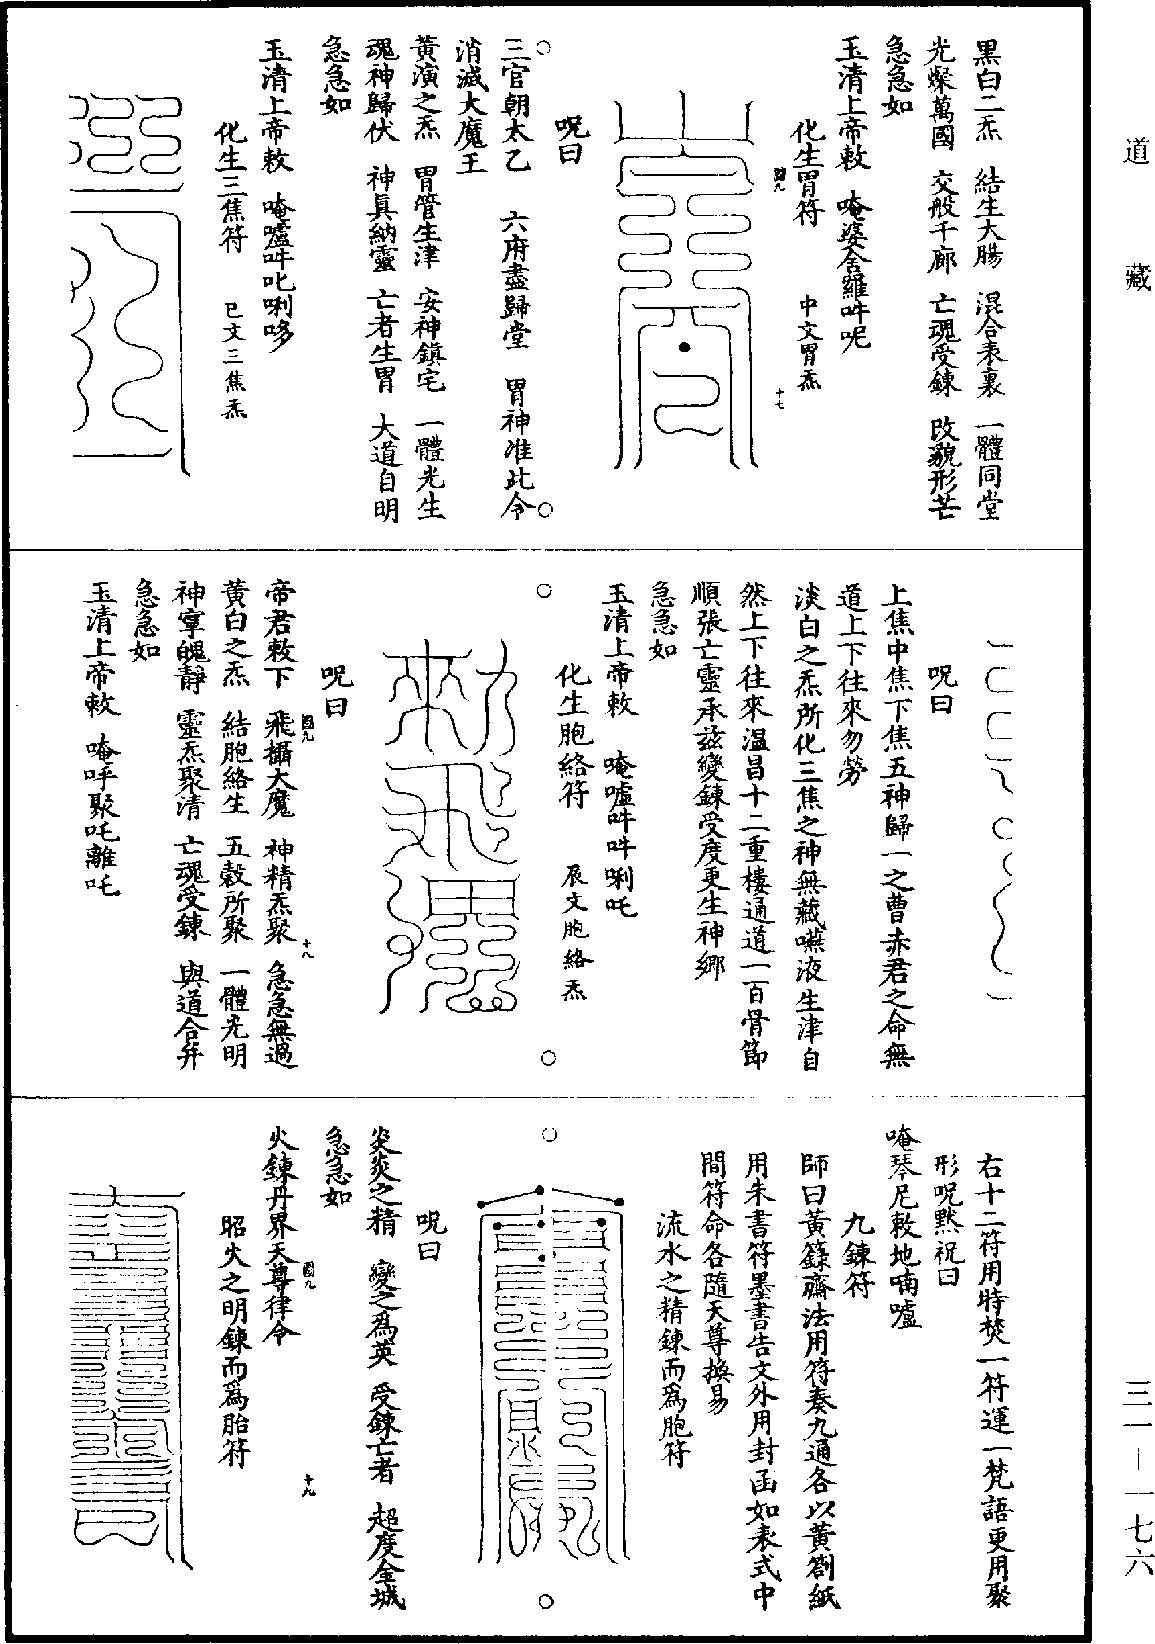 道藏
三一—一七六
黑白二炁　結生大腸　混合表裏　一體同堂
光燦萬國　交般千廊　亡魂受鍊　改貌形芒
急急如
玉清上帝敕　唵婆舍羅吽呢
化生胃符　中文胃炁
十七
呪曰
三官朝太乙　六府盡歸堂　胃神准此令
消滅大魔王
黃演之炁　胃管生津　安神鎮宅　一體光生
魂神歸伏　神真納靈　亡者生胃　大道自明
急急如
玉清上帝敕　唵嘘吽叱唎哆
化生三焦符　巳文三焦炁
呪曰
上焦中焦下焦五神歸一之曹赤君之命無
道上下往來勿勞
淡白之炁所化三焦之神無藏嚥液生津自
然上下往來溫昌十二重樓通道一百骨節
順張亡靈承茲變鍊受度更生神鄉
急急如
玉清上帝敕　唵嘘吽吽唎吒
化生胞絡符　辰文胞絡炁
呪曰
帝君敕下　飛攝大魔　神精炁聚　急急無過
十八
黃白之炁　結胞絡生　五穀所聚　一體光明
神寧魄靜　靈炁聚清　亡魂受鍊　與道合并
急急如
玉清上帝敕　唵呼聚吒離吒
右十二符用時焚一符運一梵語更用聚
形呪默祝曰
唵琴尼敕地喃嘘
九鍊符
師曰黃籙齋法用符奏九通各以黃劄紙
用朱書符墨書告文外用封函如表式中
間符命各隨天尊換易
流水之精鍊而爲胞符
呪曰
炎炎之精　變之爲英　受鍊亡者　超度金城
急急如
火鍊丹界天尊律令
十九
昭火之明鍊而爲胎符